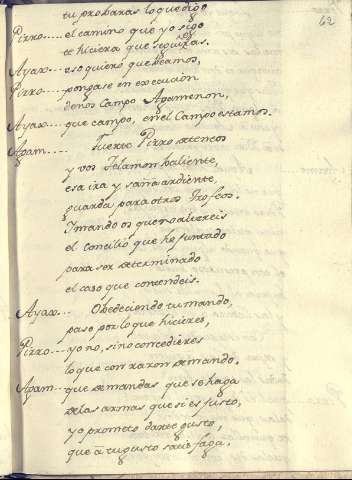 tu probaras lo que digo
62
Pirro.... el camino que yo sigo
te hiciera que siguieras.
Ayax... eso quiero que beamos,
Pirro.... pongase en execucion
denos Campo Agamenon,
Ayax... que campo, en el Campo estamos.
Agam.... Fuerte Pirro detenéos
y vos Telamon baliente,
esa ira y saña ardiente,
guarda para otros trofeos.
Y mando os que no altereis
el Concilio que he juntado
para ser determinado
el caso que contendeis.
Ayax... Obedeciendo tu mando,
paso por lo que hicieres,
Pirro... yo no, sino concedieres
lo que con razon demando.
Agam... que demandas que se haga
de las armas que si es justo,
yo prometo darte gusto,
que a tu gusto satisfaga.